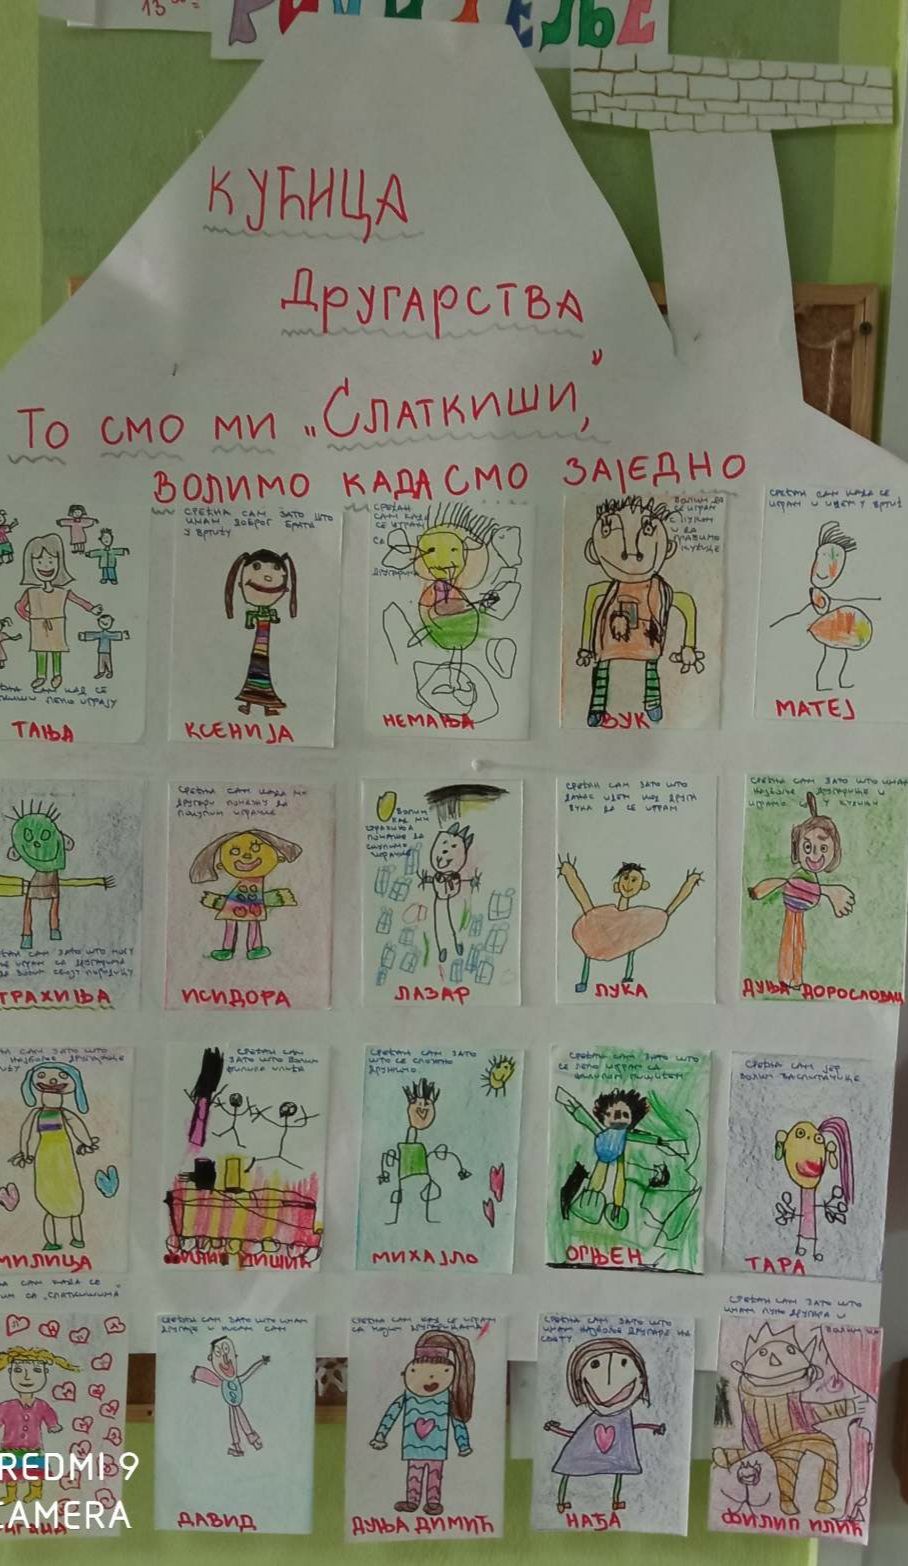 13
РОДИТЕЉЕ
КУЋИЦА
ДРУГАРСТВА
ТО СМО МИ „СЛАТКИШИ,“
ВОЛИМО КАДА СМО ЗАЈЕДНО
СРЕЋНА САМ ЗАТО ШТО
ИМАМ ДОБРОГ БРАТА
У ВРТИЋУ
СРЕЋАН
САМ КАДА
СЕ ИГРАМ
СА
ДРУГАРИМА
ВОЛИМ ДА
СЕ ИГРАМ
С ЛУКОМ
И ДА
ПРАВИМО
КУЋИЦЕ
СРЕЋАН САМ КАДА СЕ
ИГРАМ И ИДЕМ У ВРТИЋ
САМ КАД СЕ
ЛЕПО ИГРАЈУ
ТАЊА
КСЕНИЈА
НЕМАЊА
ВУК
МАТЕЈ
СРЕЋНА САМ КАДА МИ
ДРУГАРИ ПОМАЖУ ДА
ПОКУПИМ ИГРАЧКЕ
ВОЛИМ
КАД МИ
СТРАХИЊА
ПОМАЖЕ ДА
СКУПИМО
ИГРАЧКЕ
СРЕЋАН САМ ЗАТО ШТО
ДАНАС ИДЕМ КОД ДРУГА
ВУКА ДА СЕ ИГРАМ
СРЕЋНА САМ ЗАТО ШТО ИМАМ
НАЈБОЉЕ ДРУГАРИЦЕ И
ИГРАМО СЕ У КУХИЊИ
САМ ЗАТО ШТО МОГУ
ИГРАМ СА ДРУГАРИМА
ДА ВОЛИМ СВОЈУ ПОРОДИЦУ
ТРАХИЊА
ИСИДОРА
ЛАЗАР
ЛУКА
ДУЊА ДОРОСЛОВАЦ
САМ ЗАТО ШТО
НАЈБОЉЕ ДРУГАРИЦЕ
СРЕЋАН САМ
ЗАТО ШТО ВОЛИМ
ФИЛИПА ИЛИЋА
СРЕЋАН САМ ЗАТО
ШТО СЕ СЛОЖНО
ДРУЖИМО.
СРЕЋАН САМ ЗАТО ШТО
СЕ ЛЕПО ИГРАМ СА
ФИЛИПОМ
СРЕЋНА САМ ЈЕР
ВОЛИМ ВАСПИТАЧИЦЕ
МИЛИЦА
МИХАЈЛО
ОГЊЕН
ТАРА
САМ КАДА СЕ
СА „СЛАТКИШИМА“
СРЕЋАН САМ ЗАТО ШТО ИМАМ
ДРУГАРЕ И НИСАМ САМ
СРЕЋНА САМ КАД СЕ ИГРАМ
СА МОЈИМ ДРУГАРИЦАМА
СРЕЋНА САМ ЗАТО ШТО
ИМАМ НАЈБОЉЕ ДРУГАРЕ НА
СВЕТУ
СРЕЋАН САМ ЗАТО ШТО
ИМАМ ПУНО ДРУГАРА И
ВОЛИМ ИХ
ДАВИД
ДУЊА ДИМИЋ
НАЂА
ФИЛИП ИЛИЋ
REDMI 9
CAMERA